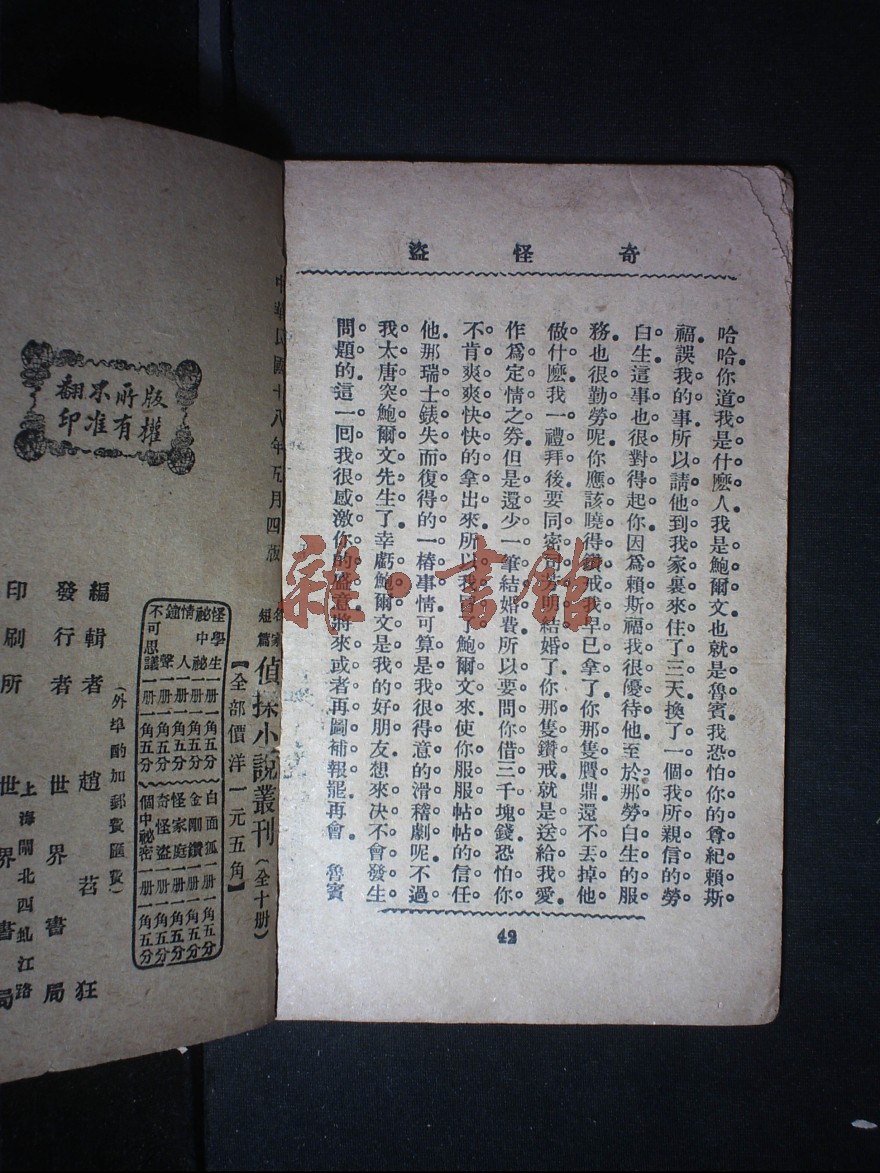 奇怪盜
哈哈你道我是什麼人我是鮑爾文也就是魯賓我恐怕你的尊紀賴斯
福誤我的事所以請他到我家裏來住了三天換了一個我所親信的勞
白生這事也很對得起你因爲賴斯福我很優待他至於那勞白生的服
務也很勤勞呢你應該曉得鑽戒我早已拿了你那隻贋鼎還不丟掉他
做什麼我一禮拜後要同密司芳明結婚了你那隻鑽戒就是送給我愛
作爲定情之劵但是還少一筆結婚費所以要問你借三千塊錢恐怕你
不肯爽爽快快的拿出來所以我冒了鮑爾文來使你服服帖帖的信任
他那瑞士錶失而復得的一樁事情可算是我很得意的滑稽劇呢不過
我太唐突鮑爾文先生了幸虧鮑爾文是我的好朋友想來决不會發生
問題的這一回我很感激你的盛意將來或者再圖補報罷再會 魯賓
42
中華民國十八年五月四版
名家短篇 偵探小說叢刊(全十册)
【全部價洋一元五角】
怪學生一册一角五分
祕中祕一册一角五分
情人一册一角五分
鐘聲一册一角五分
不可思議一册一角五分
白面狐一册一角五分
金剛鑽一册一角五分
怪家庭一册一角五分
奇怪盜一册一角五分
個中祕密一册一角五分
(外埠酌加郵費匯費)
編輯者 趙苕狂
發行者 世界書局
上海閘北四虬江路
印刷所 世界書局
版權所有不准翻印
雜·書館